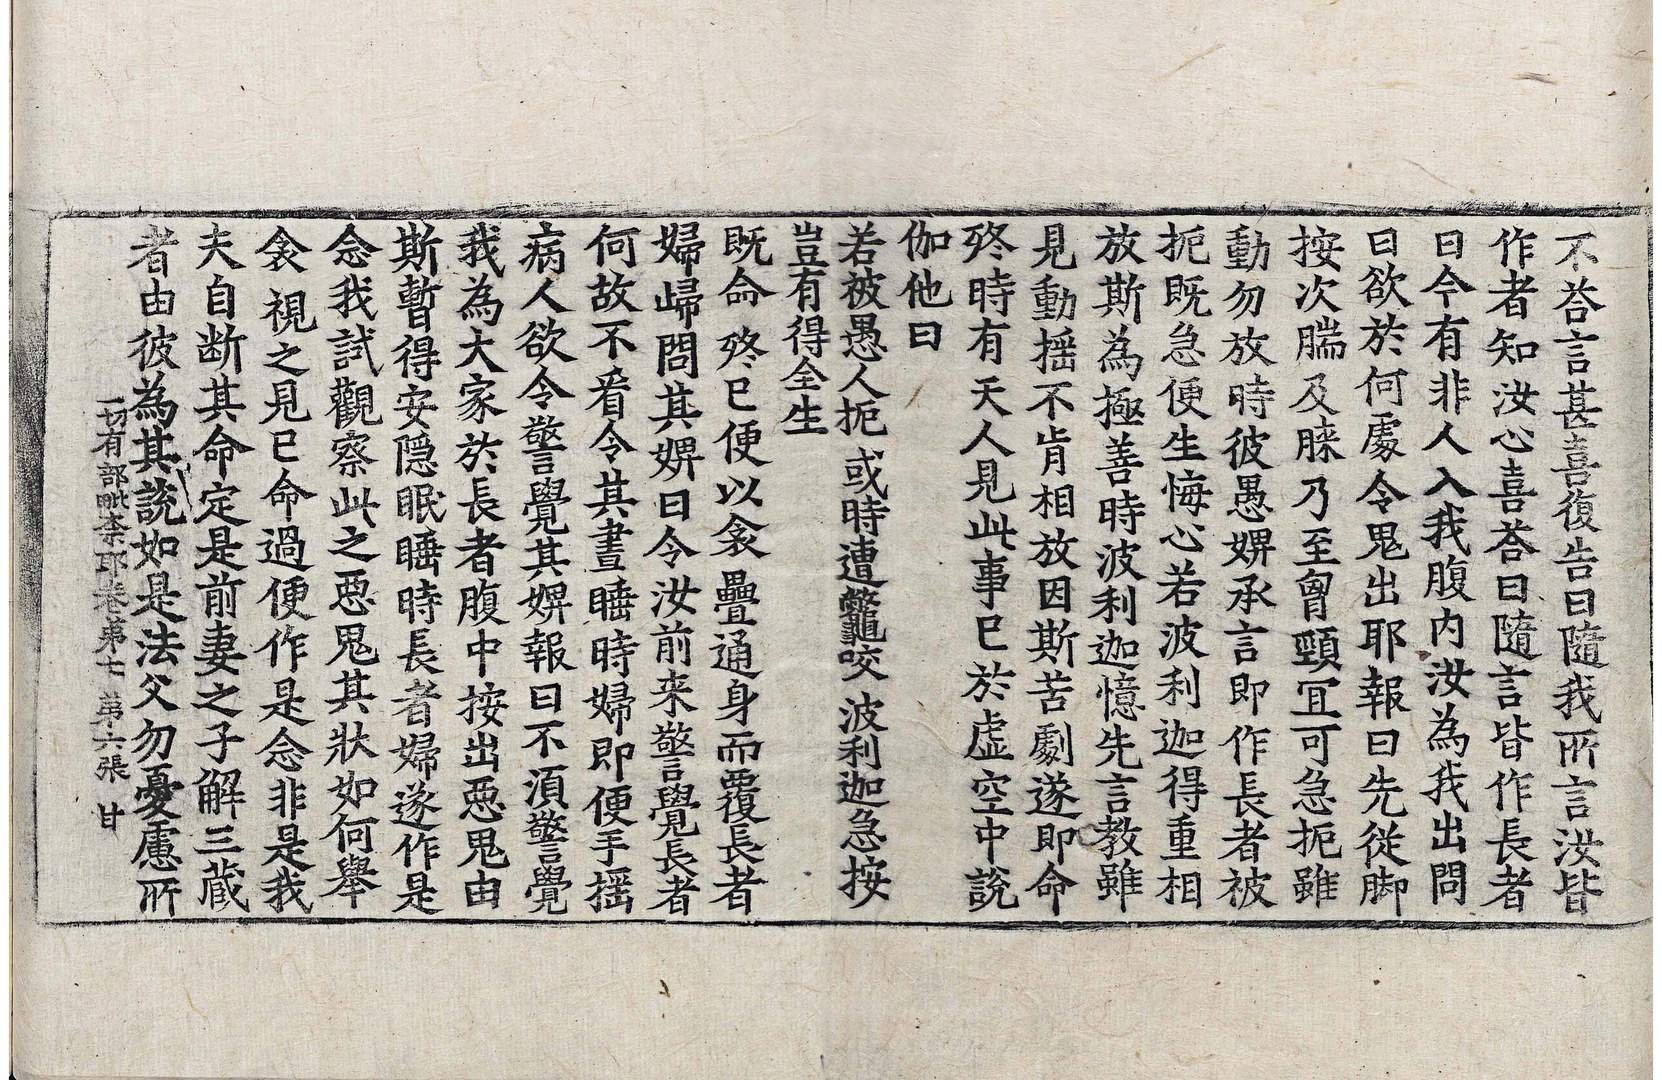 不荅言甚喜復告曰隨我所言汝皆
作者知汝心喜荅曰隨言皆作長者
曰今有非人入我腹内汝為我出問
曰欲於何處令鬼出耶報曰先從脚
按次腨及䐁乃至胷頸冝可急扼雖
動勿放時彼愚婢承言即作長者被
扼既急便生悔心若波利迦得重相
放斯為極善時波利迦憶先言教雖
見動揺不肯相放因斯苦劇遂即命
終時有天人見此事已於虚空中說
伽他曰
若被愚人扼　或時遭鼈咬　波利迦急按
豈有得全生
既命終已便以衾疊通身而覆長者
婦歸問其婢曰今汝前来警覺長者
何故不看令其晝睡時婦即便手揺
病人欲令警覺其婢報曰不須警覺
我為大家於長者腹中按出惡鬼由
斯暫得安隠眠睡時長者婦遂作是
念我試觀察此之惡鬼其狀如何舉
衾視之見已命過便作是念非是我
夫自断其命定是前妻之子解三蔵
者由彼為其說如是法父勿憂慮所
一切有部毗奈耶卷第七　第六張　甘